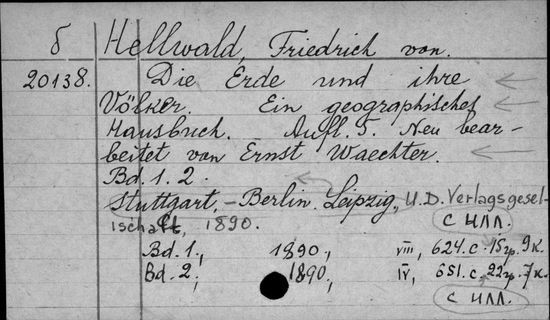 δ Hellwald, Friedrich von.
20138. Die Erde und ihre
Völker. Ein geographisches
Hausbuch. Aufl. 5. Neu bear-
beitet von Ernst Waechter.
Bd. 1. 2.
Stuttgart, - Berlin. Leipzig, U. D. Verlagsgesel-
lschaft, 1890. с илл.
Bd. 1., 1890., VIII, 624. с. 15гр. 9 к.
Bd. 2., 1890., IV, 651. с. 22гр. 7 к.
с илл.